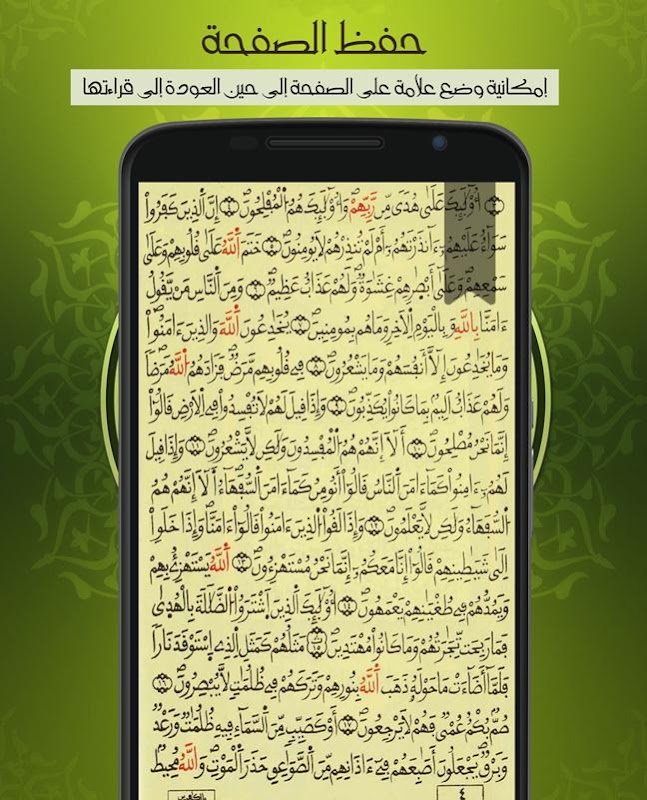 حفظ الصفحة
إمكانية وضع علامة على الصفحة إلى حين العودة إلى قراءتها
۝ أُوْلَٰٓئِكَ عَلَىٰ هُدٗى مِّن رَّبِّهِمْ وَأُوْلَٰٓئِكَ هُمُ اُ۬لْمُفْلِحُونَۖ ۝ إِنَّ اَ۬لذِينَ كَفَرُواْ
سَوَآءٌ عَلَيْهِمُۥٓ ءَآنذَرْتَهُمُۥٓ أَمْ لَمْ تُنذِرْهُمْ لَا يُومِنُونَۖ ۝ خَتَمَ اَ۬للَّهُ عَلَىٰ قُلُوبِهِمْ وَعَلَىٰ
سَمْعِهِمْ وَعَلَىٰٓ أَبْصَٰرِهِمْ غِشَٰوَةٞۖ وَلَهُمْ عَذَابٌ عَظِيمٞۖ ۝ وَمِنَ اَ۬لنَّاسِ مَنْ يَّقُولُ
ءَامَنَّا بِاللَّهِ وَبِالْيَوْمِ اِ۬لَاخِرِ وَمَا هُم بِمُومِنِينَۖ ۝ يُخَٰدِعُونَ اَ۬للَّهَ وَالذِينَ ءَامَنُواْ
وَمَا يُخَٰدِعُونَ إِلَّآ أَنفُسَهُمْ وَمَا يَشْعُرُونَۖ ۝ فِے قُلُوبِهِم مَّرَضٞ فَزَادَهُمُ اُ۬للَّهُ مَرَضاٗ
وَلَهُمْ عَذَابٌ اَلِيمُۢ بِمَا كَانُواْ يُكَذِّبُونَۖ ۝ وَإِذَا قِيلَ لَهُمْ لَا تُفْسِدُواْ فِے اِ۬لَارْضِ قَالُوٓاْ
إِنَّمَا نَحْنُ مُصْلِحُونَۖ ۝ أَلَآ إِنَّهُمْ هُمُ اُ۬لْمُفْسِدُونَ وَلَٰكِن لَّا يَشْعُرُونَۖ ۝ وَإِذَا قِيلَ
لَهُمُۥٓ ءَامِنُواْ كَمَآ ءَامَنَ اَ۬لنَّاسُ قَالُوٓاْ أَنُومِنُ كَمَآ ءَامَنَ اَ۬لسُّفَهَآءُۖ اَ۬لَآ إِنَّهُمْ هُمُ
اُ۬لسُّفَهَآءُ وَلَٰكِن لَّا يَعْلَمُونَۖ ۝ وَإِذَا لَقُواْ اُ۬لذِينَ ءَامَنُواْ قَالُوٓاْ ءَامَنَّا وَإِذَا خَلَوِاْ
اِلَىٰ شَيَٰطِينِهِمْ قَالُوٓاْ إِنَّا مَعَكُمُۥٓ إِنَّمَا نَحْنُ مُسْتَهْزِءُونَۖ ۝ اَ۬للَّهُ يَسْتَهْزِۓُ بِهِمْ
وَيَمُدُّهُمْ فِے طُغْيَٰنِهِمْ يَعْمَهُونَۖ ۝ أُوْلَٰٓئِكَ اَ۬لذِينَ اَ۪شْتَرَوُاْ اُ۬لضَّلَٰلَةَ بِالْهُدَىٰ
فَمَا رَبِحَت تِّجَٰرَتُهُمْ وَمَا كَانُواْ مُهْتَدِينَۖ ۝ مَثَلُهُمْ كَمَثَلِ اِ۬لذِے اِ۪سْتَوْقَدَ نَاراٗ
فَلَمَّآ أَضَآءَتْ مَا حَوْلَهُۥ ذَهَبَ اَ۬للَّهُ بِنُورِهِمْ وَتَرَكَهُمْ فِے ظُلُمَٰتٖ لَّا يُبْصِرُونَۖ ۝
صُمُّۢ بُكْمٌ عُمْيٞ فَهُمْ لَا يَرْجِعُونَۖ ۝ أَوْ كَصَيِّبٖ مِّنَ اَ۬لسَّمَآءِ فِيهِ ظُلُمَٰتٞ وَرَعْدٞ
وَبَرْقٞ يَجْعَلُونَ أَصَٰبِعَهُمْ فِےٓ ءَاذَانِهِم مِّنَ اَ۬لصَّوَٰعِقِ حَذَرَ اَ۬لْمَوْتِۖ وَاللَّهُ مُحِيطُۢ
بالكافرين
٤